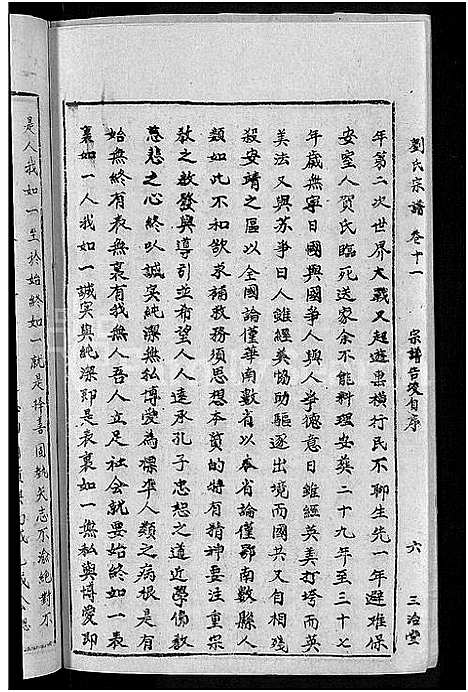 劉氏宗譜 卷十一 宗譜告竣自序 六 三治堂
年第二次世界大戰又起遊票橫行民不聊生先一年避難保
安室人賀氏臨死送家余不能料理安葬二十九年至三十七
年歲無寧日國與國爭人與人爭德意日雖經英美打垮而英
美法又與苏爭日人雖經美協助驅逐出境而國共又自相殘
殺安靖之區以全國論僅華南數省以本省論僅鄂南數縣人
類如不和欲求補救務須思想本質的有精神要注重宗
教之啟發與導引並希望人人遠承孔子忠恕之道近學佛教
慈悲之心終以誠実純潔無私博愛為標準人類之病根是有
始無終有表無裏有我無人吾人立足社會就要始終如一表
裏如一人我如一誠実與純潔即是表裏如一無私與博愛即
是人我如一至於始終如一就是擇善固執矢志不渝絕對不